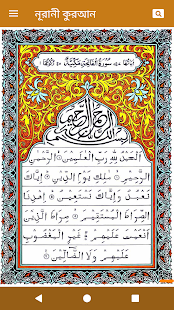 নূরানী কুরআন
سُوْرَةُ الْفَاتِحَةِ مَكِّيَّةٌ
بسم الله الرحمن الرحيم
اَلْحَمْدُ لِلّٰهِ رَبِّ الْعٰلَمِيْنَ ۝ الرَّحْمٰنِ
الرَّحِيْمِ ۝ مٰلِكِ يَوْمِ الدِّيْنِ ۝ اِيَّاكَ
نَعْبُدُ وَ اِيَّاكَ نَسْتَعِيْنُ ۝ اِهْدِنَا
الصِّرَاطَ الْمُسْتَقِيْمَ ۝ صِرَاطَ الَّذِيْنَ
اَنْعَمْتَ عَلَيْهِمْ ۝ غَيْرِ الْمَغْضُوْبِ
عَلَيْهِمْ وَلَا الضَّآلِّيْنَ ۝